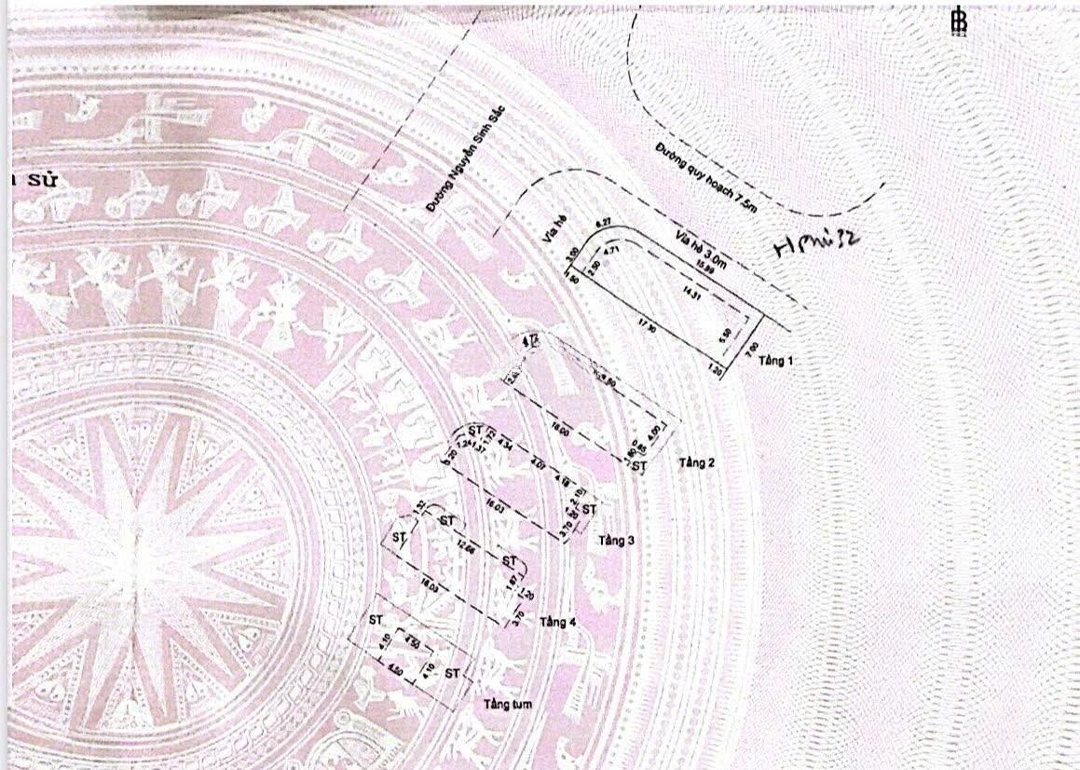 B
n sử
Đường Nguyễn Sinh Sắc
Đường quy hoạch 7.5m
Vỉa hè
Vỉa hè 3.0m
6.27
3.00
4.71
2.50
1.50
15.99
14.31
17.30
5.50
7.00
1.20
Tầng 1
16.00
4.00
0.85
ST
Tầng 2
ST
4.34
4.07
4.18
2.10
ST
16.03
3.70
Tầng 3
ST
ST
12.66
ST
16.03
1.87
1.20
3.70
Tầng 4
ST
4.50
4.10
4.50
4.10
ST
Tầng tum